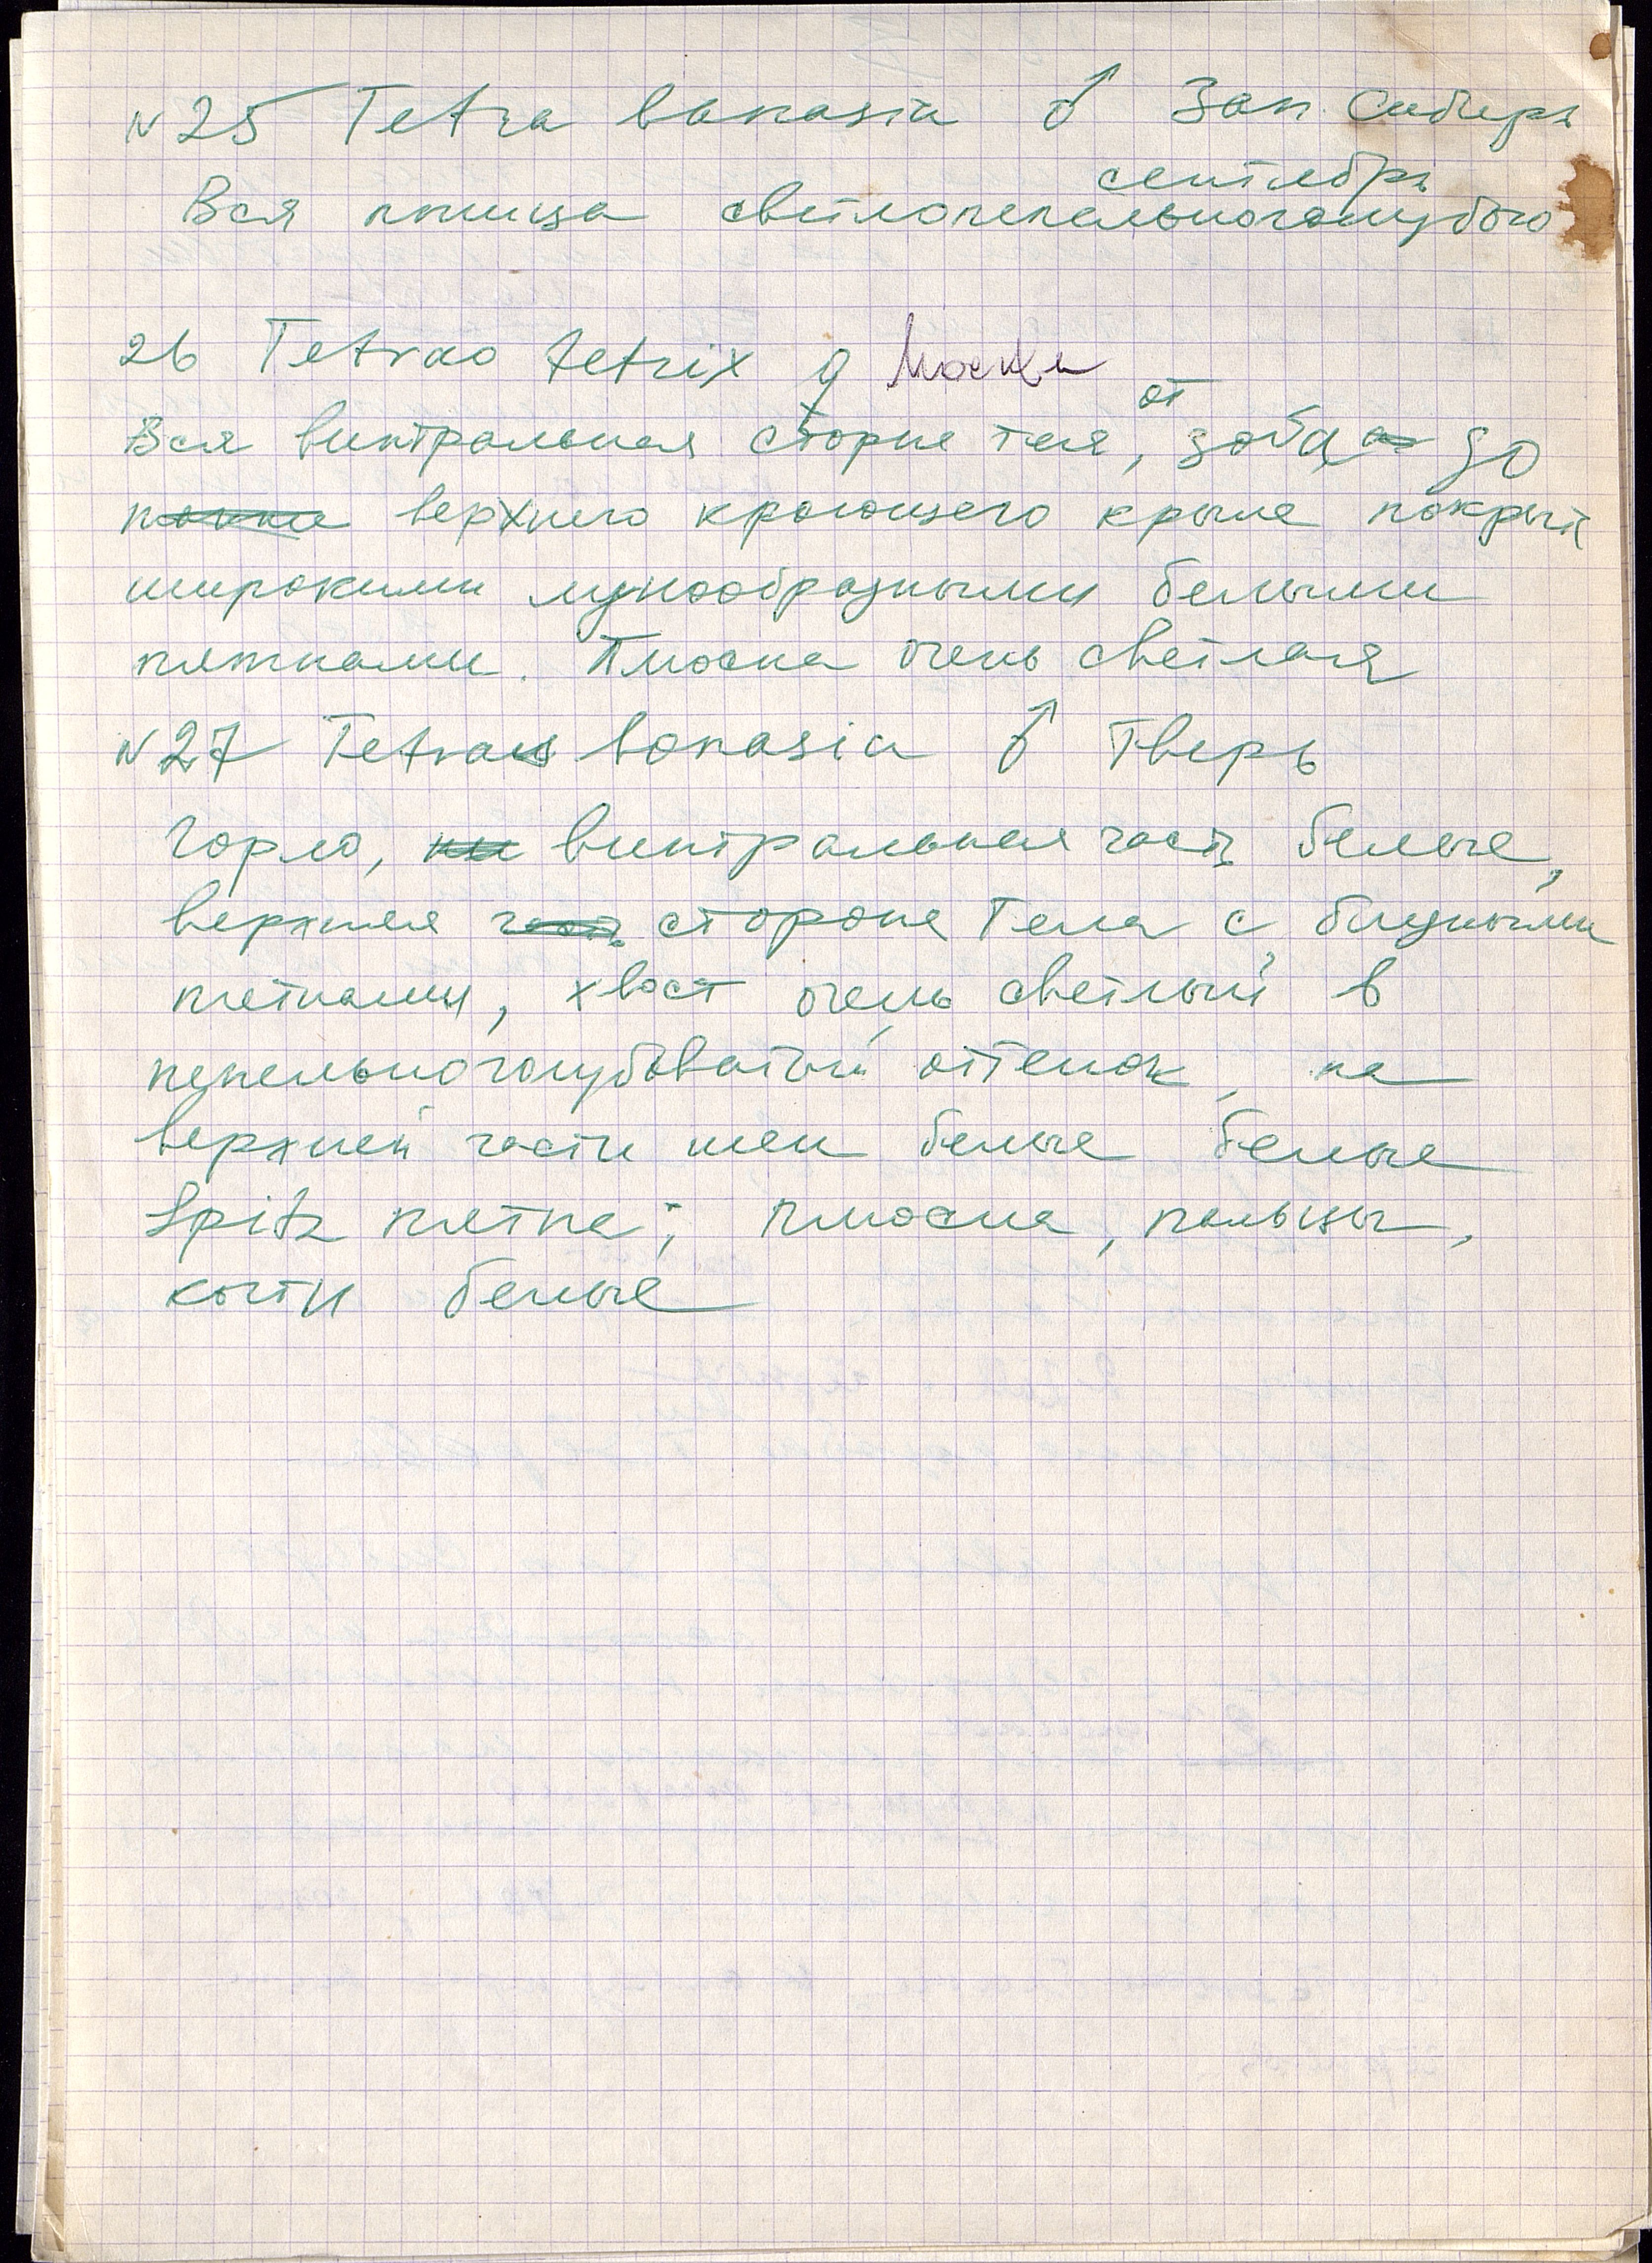 N 25 Tetra bonasia ♂ Зап. Сибирь
сентябрь
Вся птица светлопепельноголубого
26 Tetrao tetrix ♀ Москва
Вся винтральная сторна тела, от зоба до
верхнего кроющего крыла покрыт
широкими лунообразными белыми
пятнами. Плюсна очень светлая
N 27 Tetrao bonasia ♂ Тверь
Горло, винтральная часть белые,
верхняя сторона тела с бледными
пятнами, хвост очень светлый в
пепельноголубоватый оттенок, на
верхней части шеи белые белые
Spitz пятна; плюсна, пальцы,
когти белые